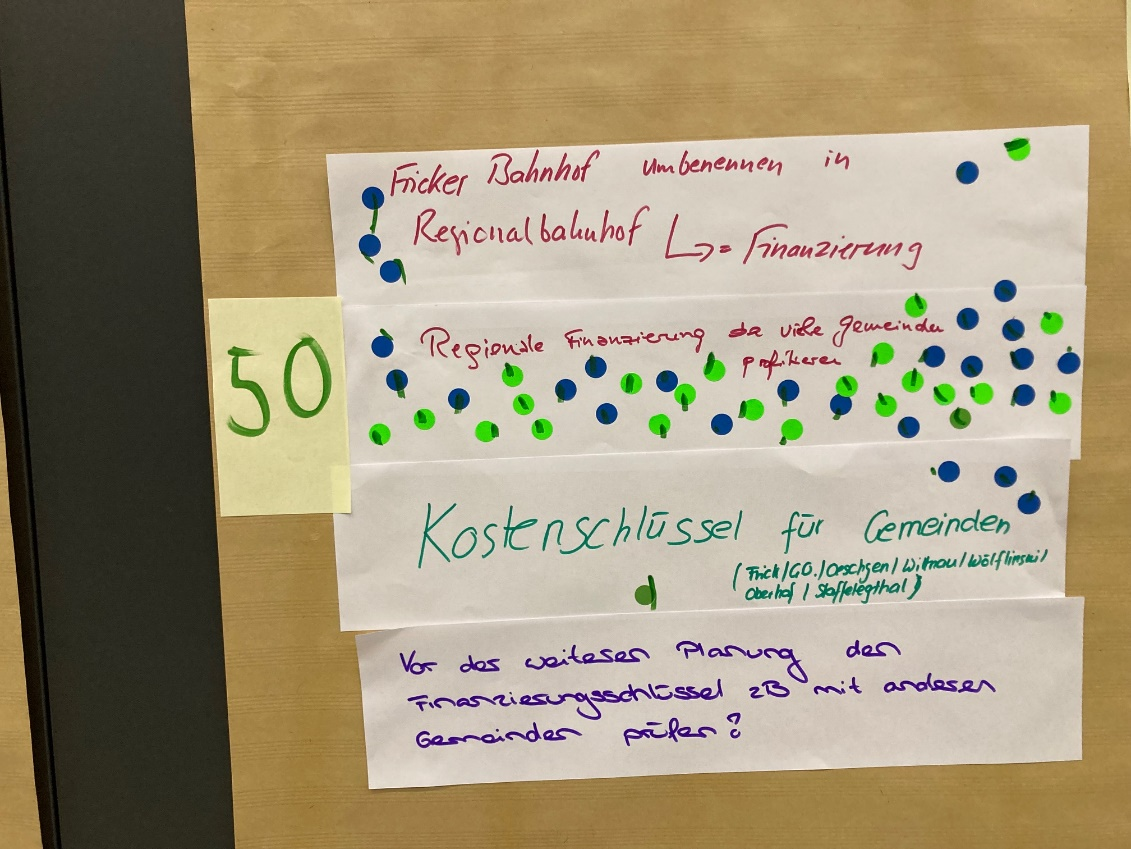 Fricker Bahnhof umbenennen in
Regionalbahnhof ↳ = Finanzierung
50
Regionale Finanzierung da viele Gemeinden
profitieren
Kostenschlüssel für Gemeinden
(Frick/G.O./Oeschgen/Wittnau/Wölflinswil/
Oberhof/Staffeleggthal)
Vor der weiteren Planung den
Finanzierungsschlüssel zB mit anderen
Gemeinden prüfen?